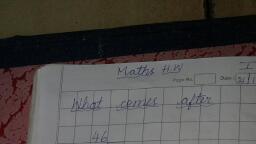 Maths H.W
Page No.
Date
What comes after
46